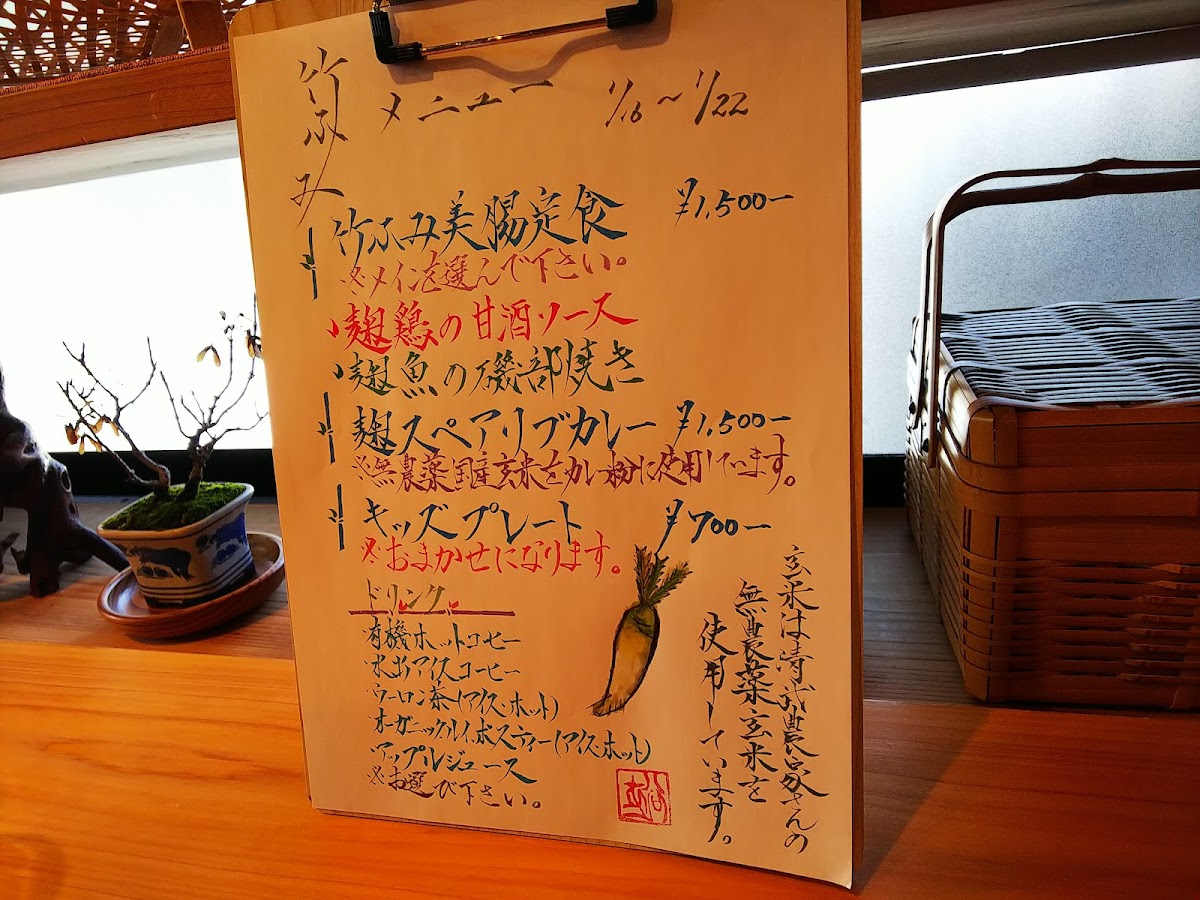 竹ふみ
メニュー 1/16〜1/22
竹ふみ美腸定食 ¥1,500-
※メインを選んで下さい。
・麹鶏の甘酒ソース
・麹魚の磯部焼き
麹スペアリブカレー ¥1,500-
※無農薬国産玄米をカレー粉に使用しています。
キッズプレート ¥700-
※おまかせになります。
ドリンク
・有機ホットコーヒー
・水出アイスコーヒー
・ウーロン茶(アイス・ホット)
・オーガニックルイボスティー(アイス・ホット)
・アップルジュース
※お選び下さい。
玄米は清武農家さんの
無農薬玄米を
使用しています。